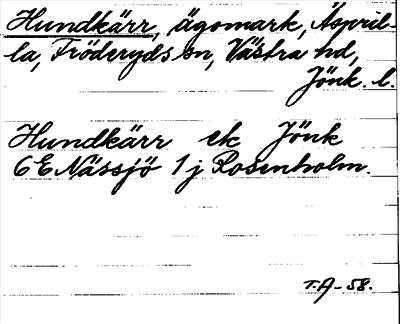 Hundkärr, ägomark, Äspril-
la, Fröderyds sn, Västra hd,
Jönk. l.
Hundkärr ek Jönk
6E Nässjö 1j Rosenholm.
T.A-58.